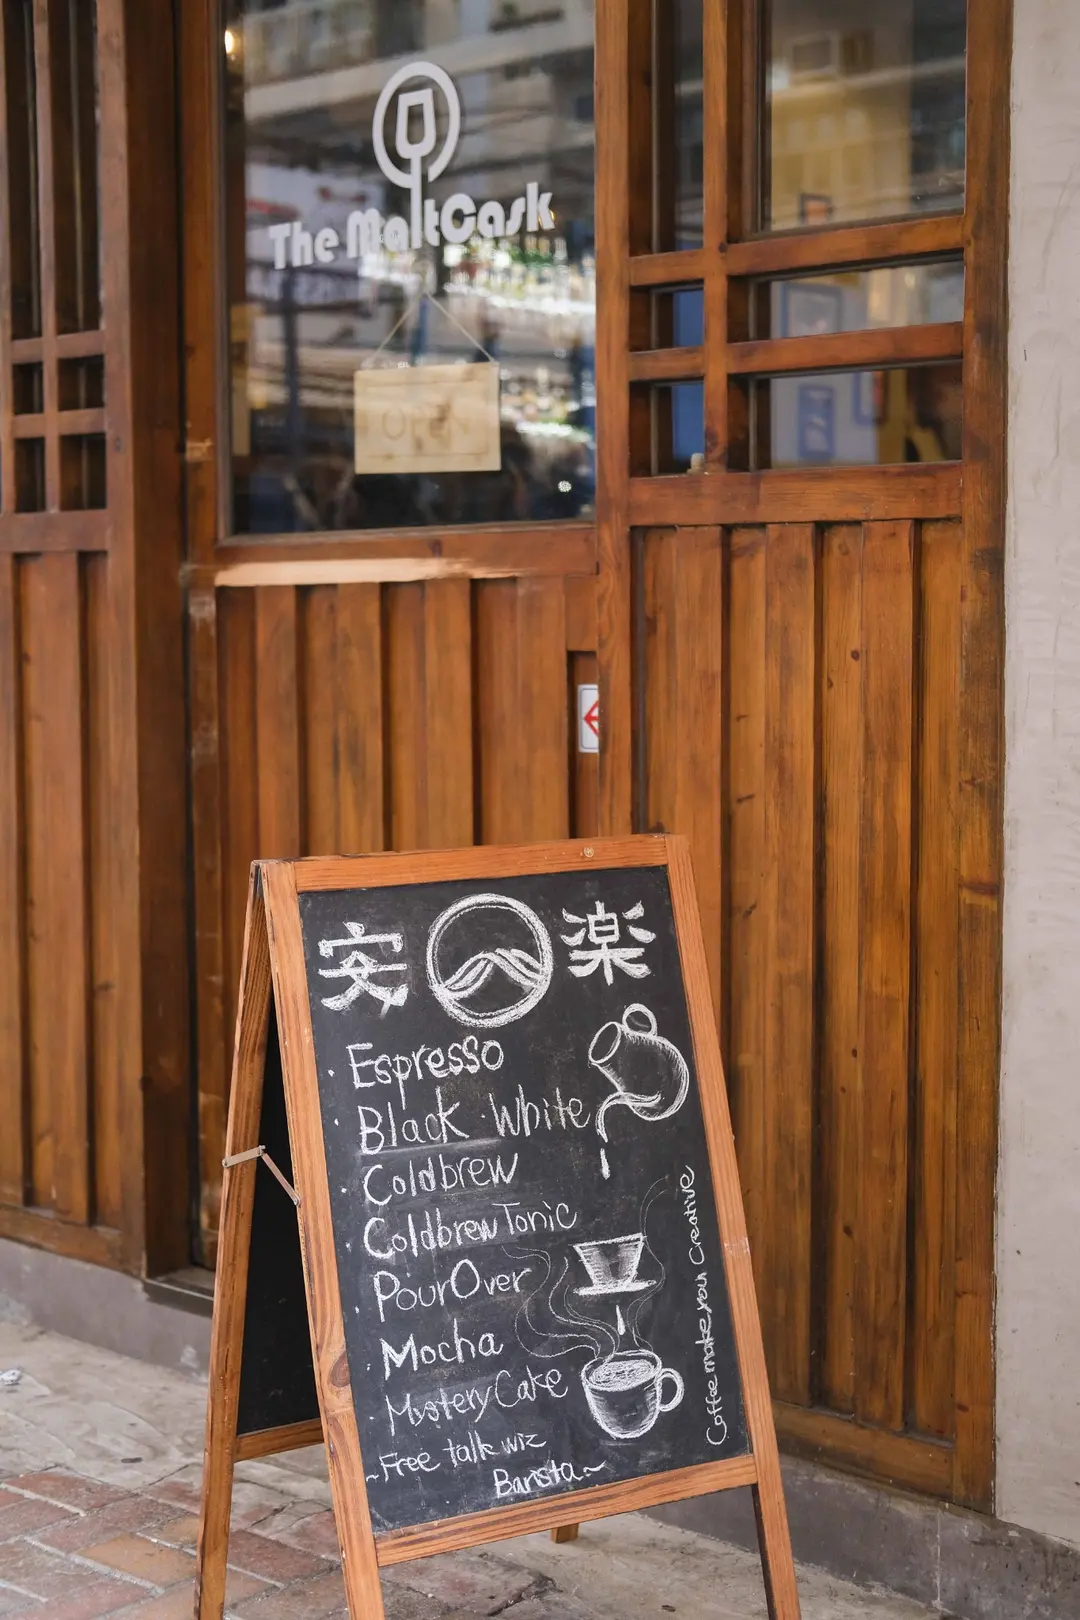 The MaltCask
OPEN
安 楽
· Espresso
· Black · White
· Coldbrew
· Coldbrew Tonic
· PourOver
· Mocha
· Mystery Cake
~Free talk wiz
Barista~
Coffee make your Creative